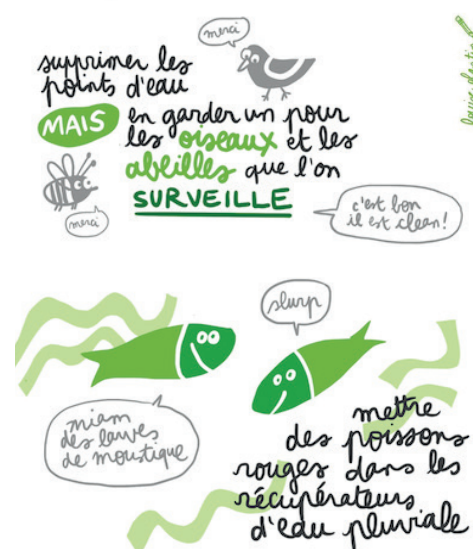 merci
supprimer les
points d'eau
MAIS en garder un pour
les oiseaux et les
abeilles que l'on
SURVEILLE
merci
c'est bon
il est clean!
slurp
miam
des larves
de moustique
mettre
des poissons
rouges dans les
récupérateurs
d'eau pluviale